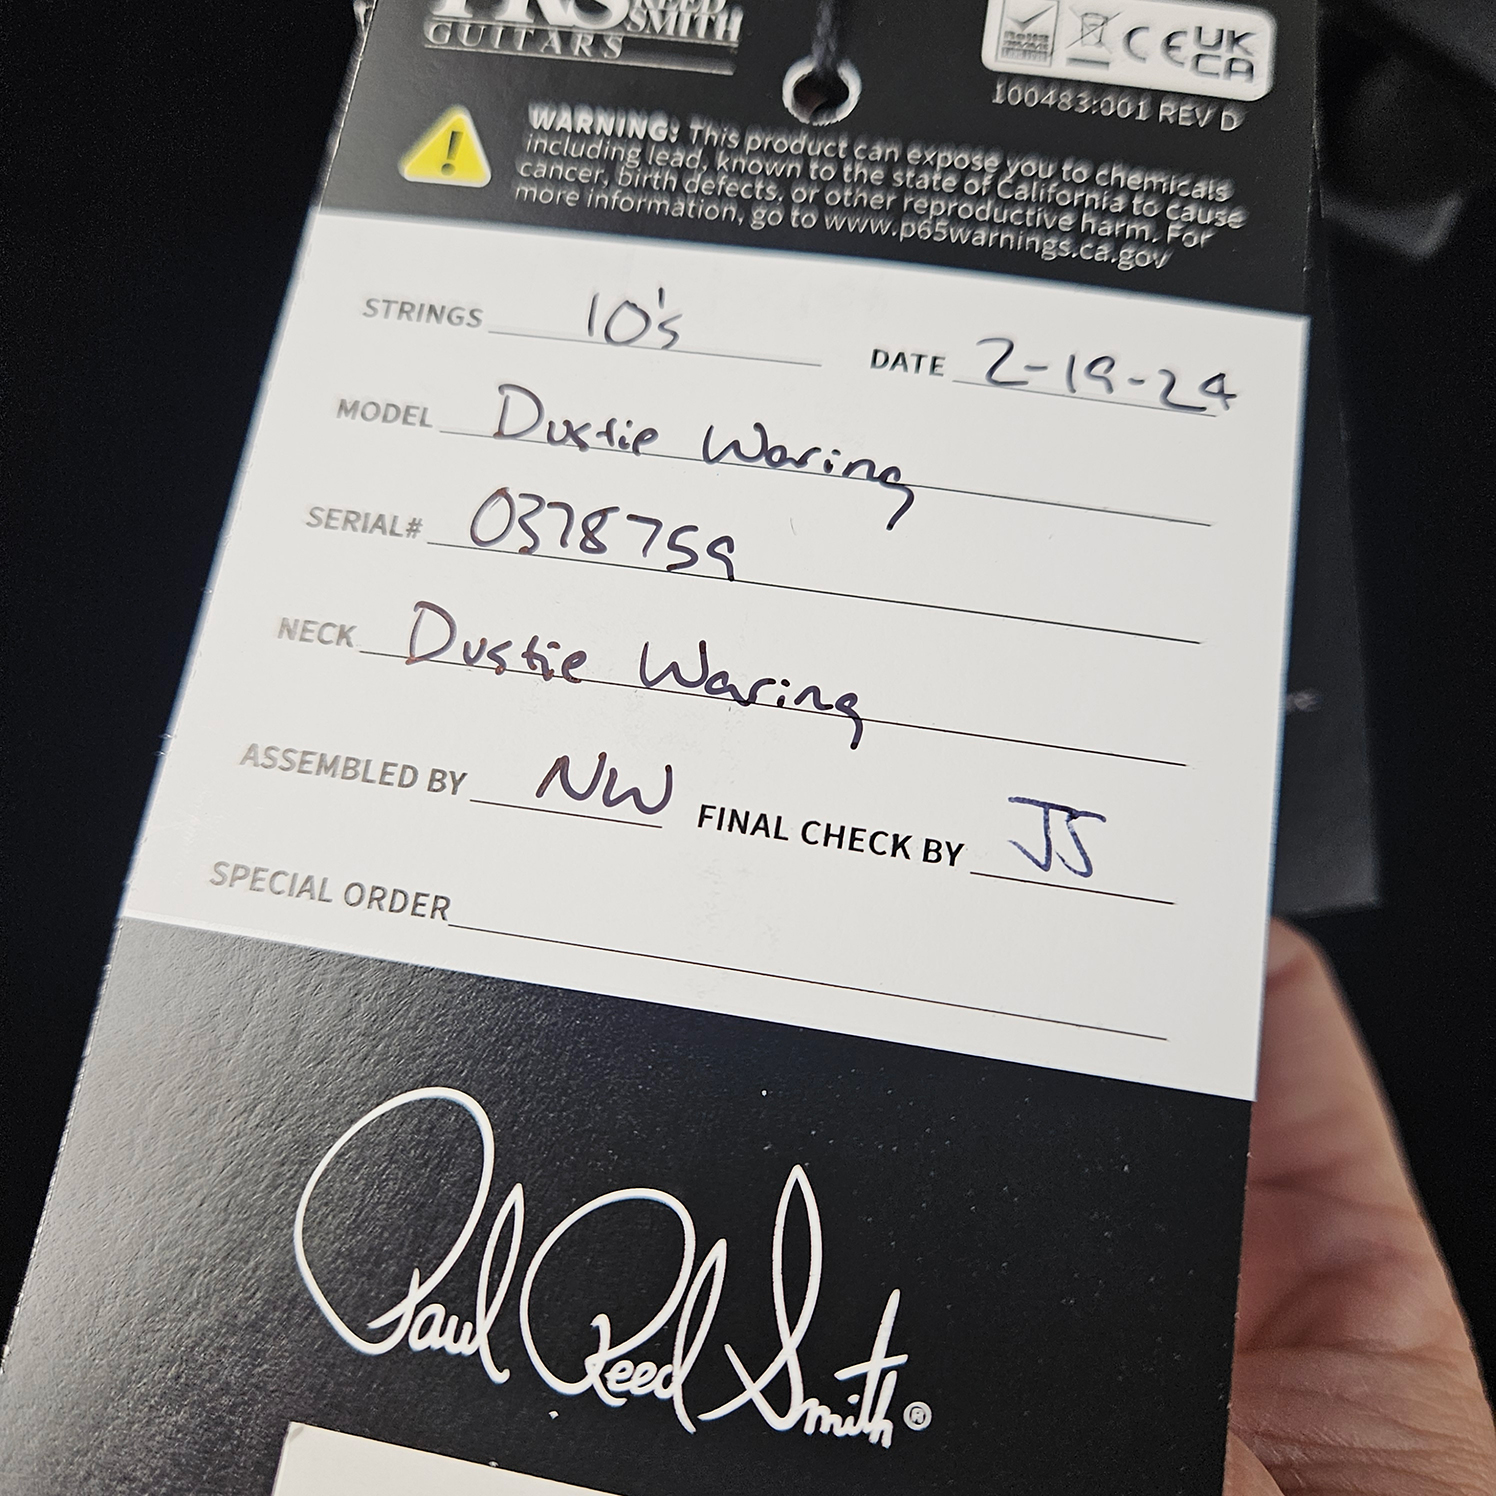 PRS REED
SMITH
GUITARS
CE UK
CA
100483:001 REV D
WARNING: This product can expose you to chemicals
including lead, known to the state of California to cause
cancer, birth defects, or other reproductive harm. For
more information, go to www.p65warnings.ca.gov
STRINGS 10's DATE 2-19-24
MODEL Dustie Waring
SERIAL# 0378759
NECK Dustie Waring
ASSEMBLED BY NW FINAL CHECK BY JS
SPECIAL ORDER
Paul Reed Smith ®